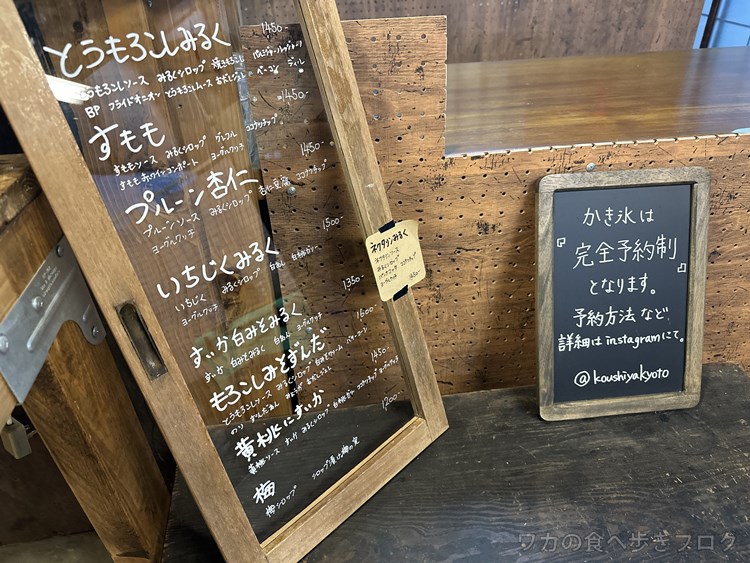 とうもろこしみるく 1450-
とうもろこしソース みるくシロップ 焼きもろこし
BP フライドオニオン とうもろこしムース おだしジュレ ベーコン ディル
すもも 1450-
すももソース みるくシロップ グレフル ココナッツチップ
すもも赤ワインコンポート ヨーグルクッチ
プルーン杏仁 1450-
プルーンソース みるくシロップ 杏仁豆腐 ココナッツチップ
ヨーグルクッチ
いちじくみるく 1500-
いちじく みるくシロップ 白あん
ヨーグルクッチ
すいか白みそみるく 1350-
すいか 白みそみるく 白あん ヨーグルクッチ
もろこしみそずんだ 1600-
とうもろこしソース みるくシロップ
のり ずんだあん おだしジュレ
黄桃にすいか 1450-
黄桃ソース すいか みるくシロップ
梅 1200-
梅シロップ シロップ漬け梅の実
ネクタリンみるく
ネクタリンソース
みるくシロップ
ヨーグルクッチ
1450-
かき氷は
『完全予約制』
となります。
予約方法など、
詳細はinstagramにて。
@koushiyakyoto
ワカの食べ歩きブログ